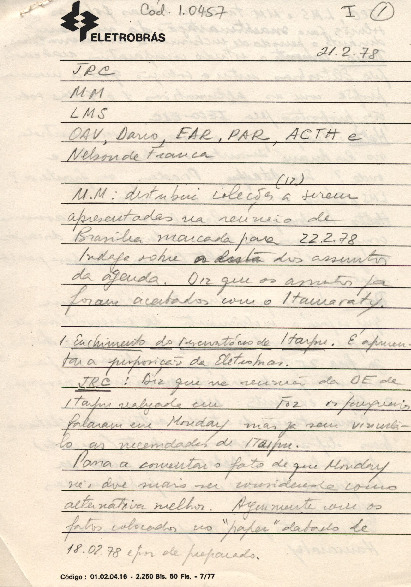 Cód. 1.0457
I 1
ELETROBRÁS
21.2.78
JRC
MM
LMS
OAV, Dario, EAR, PAR, ACTH e
Nelson de Franca
(12)
M.M: distribui coleções a serem
apresentadas na reunião de
Brasília marcada para 22.2.78
Indaga sobre a lista dos assuntos
da agenda. Diz que os assuntos já
foram acertados com o Itamaraty.
1. Enchimento do reservatório de Itaipu. É apresen-
tada a proposição da Eletrobras.
JRC: Diz que na reunião da DE de
Itaipu realizada em Foz os paraguaios
falaram em Monday mas já sem vinculá-
lo as necessidades de Itaipu.
Passa a comentar o fato de que Monday
não deve mais ser considerada como
alternativa melhor. Argumenta com os
fatos colocados no "paper" datado de
18.02.78 e por preparado.
Código: 01.02.04.16 - 2.250 Bls. 50 Fls. - 7/77